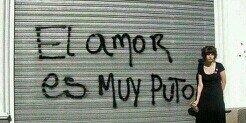 El amor
es MUY PUTO